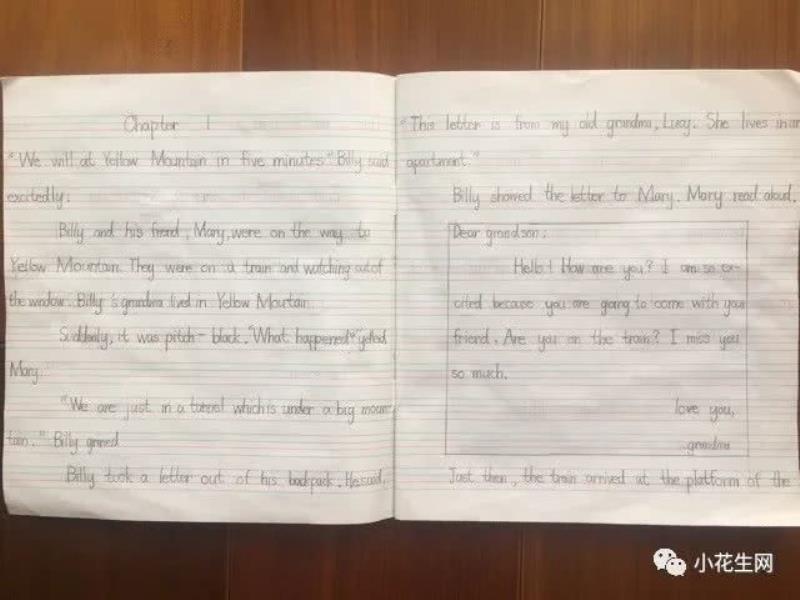 Chapter 1
"We will at Yellow Mountain in five minutes" Billy said
excitedly.
Billy and his friend, Mary, were on the way to
Yellow Mountain. They were on a train and watching out of
the window. Billy's grandma lived in Yellow Moutain.
Suddenly, it was pitch-black. "What happened?" yelled
Mary.
"We are just in a tunnel which is under a big moun-
tain." Billy grinned
Billy took a letter out of his backpack. He said,
"This letter is from my old grandma, Lucy. She lives in an
apartment."
Billy showed the letter to Mary. Mary read aloud.
Dear grandson:
Hello! How are you? I am so ex-
cited because you are going to come with your
friend. Are you on the train? I miss you
so much.
love you,
grandma
Just then, the train arrived at the platform of the
小花生网